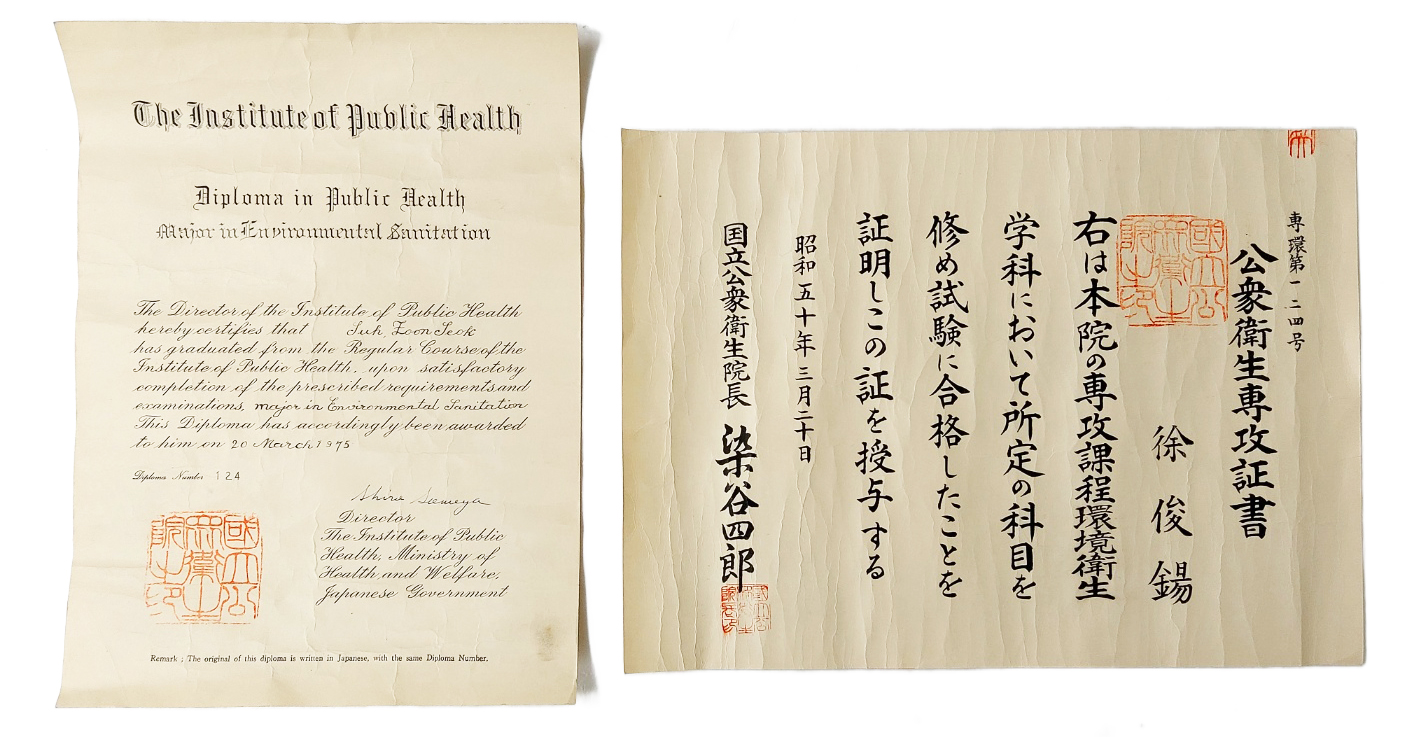 The Institute of Public Health
Diploma in Public Health
Major in Environmental Sanitation
The Director of the Institute of Public Health
hereby certifies that Suh, Zoon Seok
has graduated from the Regular Course of the
Institute of Public Health, upon satisfactory
completion of the prescribed requirements and
examinations, major in Environmental Sanitation
This Diploma has accordingly been awarded
to him on 20 March 1975
Diploma Number 124
Director
The Institute of Public
Health, Ministry of
Health and Welfare,
Japanese Government
Remark ; The original of this diploma is written in Japanese, with the same Diploma Number.
専環第一二四号
公衆衛生専攻証書
徐俊錫
右は本院の専攻課程環境衛生
学科において所定の科目を
修め試験に合格したことを
証明しこの証を授与する
昭和五十年三月二十日
国立公衆衛生院長 染谷四郎